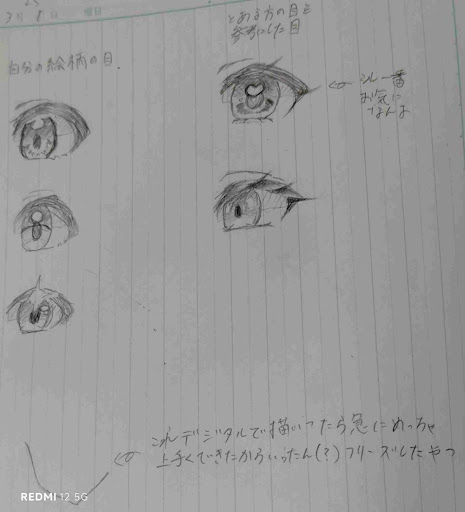 3月8日 曜日
自分の絵柄の目.
とある方の目を
参考にした目
これ一番
お気に
なんよ
これデジタルで描いてたら急にめっちゃ
上手くできたからいったん(?)フリーズしたやつ
REDMI 12 5G